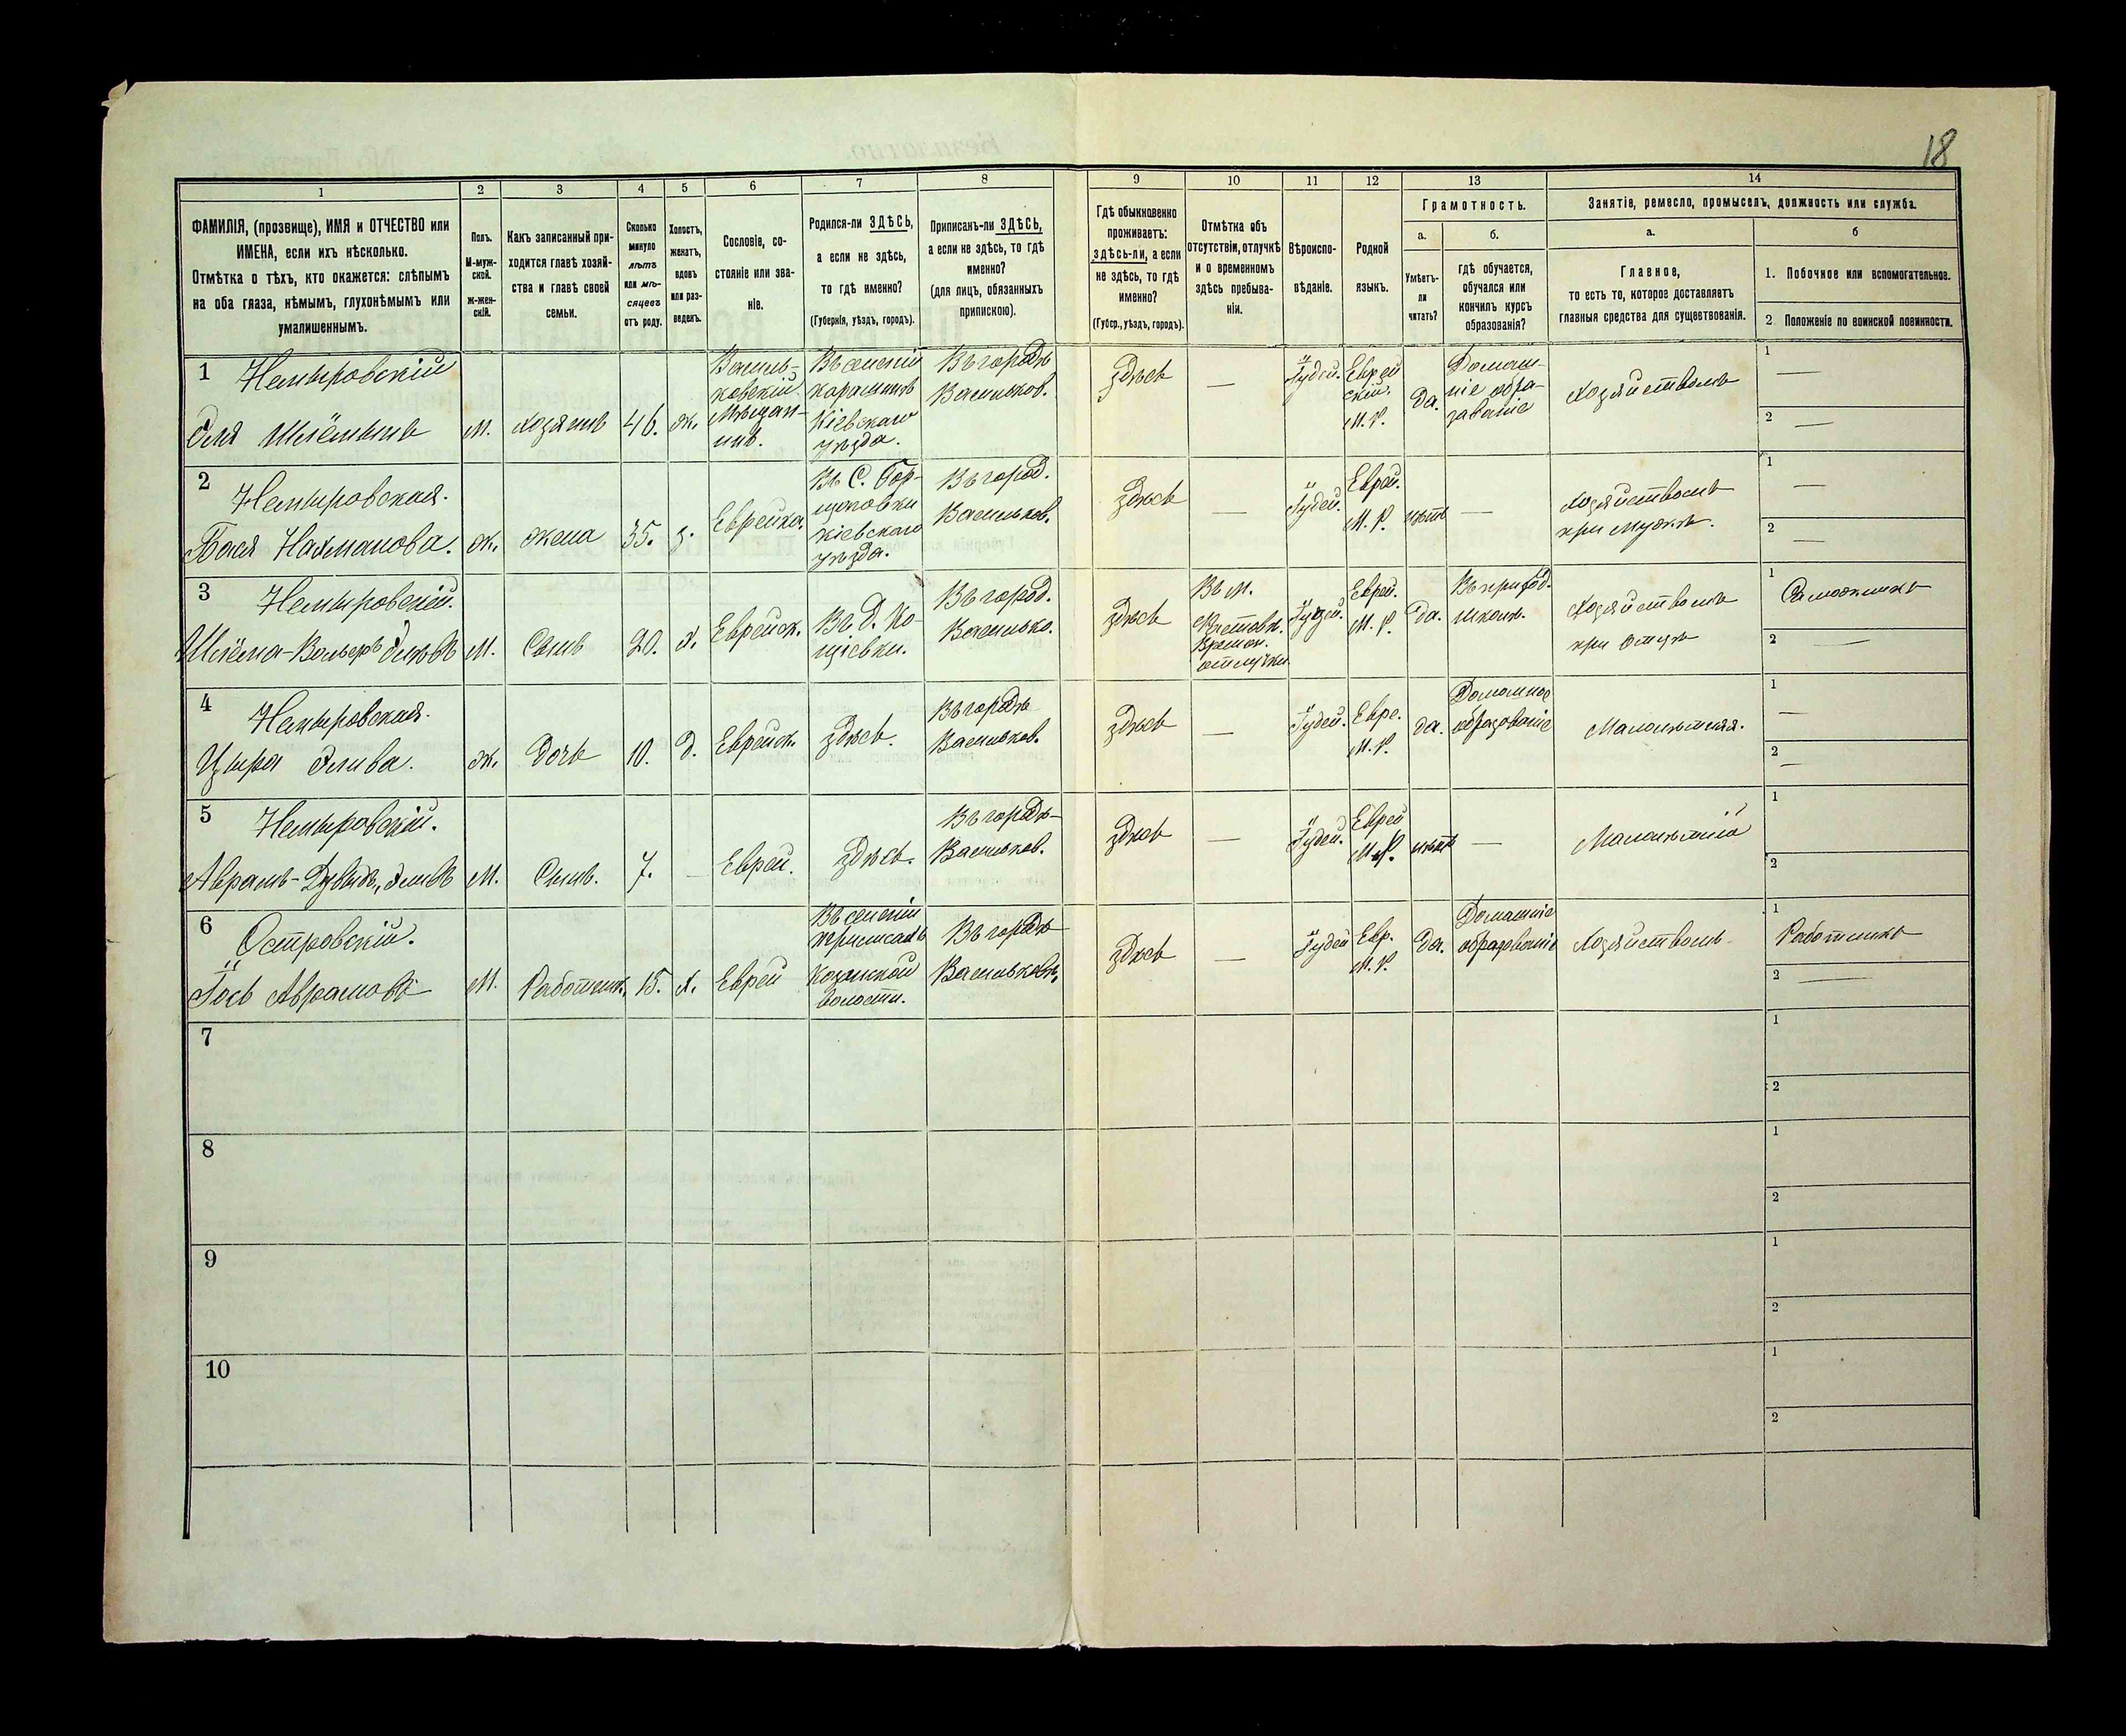 18
1 2 3 4 5 6 7 8 9 10 11 12 13 14
ФАМИЛІЯ, (прозвище), ИМЯ и ОТЧЕСТВО или
ИМЕНА, если ихъ нѣсколько.
Отмѣтка о тѣхъ, кто окажется: слѣпымъ
на оба глаза, нѣмымъ, глухонѣмымъ или
умалишеннымъ.
Полъ.
М-муж-
ской.
Ж-жен-
скій.
Какъ записанный при-
ходится главѣ хозяй-
ства и главѣ своей
семьи.
Сколько
минуло
лѣтъ
или мѣ-
сяцевъ
отъ роду.
Холостъ,
женатъ,
вдовъ
или раз-
веденъ.
Сословіе, со-
стояніе или зва-
ніе.
Родился-ли ЗДѢСЬ,
а если не здѣсь,
то гдѣ именно?
(Губернія, уѣздъ, городъ).
Приписанъ-ли ЗДѢСЬ,
а если не здѣсь, то гдѣ
именно?
(для лицъ, обязанныхъ
припискою).
Гдѣ обыкновенно
проживаетъ:
здѣсь-ли, а если
не здѣсь, то гдѣ
именно?
(Губер., уѣздъ, городъ).
Отмѣтка объ
отсутствіи, отлучкѣ
и о временномъ
здѣсь пребыва-
ніи.
Вѣроиспо-
вѣданіе.
Родной
языкъ.
Грамотность.
а.
Умѣетъ-
ли
читать?
б.
гдѣ обучается,
обучался или
кончилъ курсъ
образованія?
Занятіе, ремесло, промыселъ, должность или служба.
а.
Главное,
то есть то, которое доставляетъ
главныя средства для существованія.
б
1. Побочное или вспомогательное.
2 Положеніе по воинской повинности.
1 Немыровскій
Эля Шлёмынъ
М.
хозяинъ
46.
ж.
Василь-
ковскій
Мѣщан-
инъ.
Въ селеніи
Кіевскаго
уѣзда.
Въ городѣ
Васильков.
здѣсь
—
Іудей.
Еврей
скій.
Да.
Домаш-
ніе обра-
зованіе
Хозяйствомъ
1 —
2 —
2 Немыровская.
Бася Нахманова.
ж.
жена
35.
з.
Еврейка.
Въ С. Гор-
Кіевскаго
уѣзда.
Въ город.
Васильков.
здѣсь
—
Іудей.
Еврей.
нѣтъ
—
Хозяйствомъ
при мужѣ.
1 —
2 —
3 Немыровскій.
М.
Сынъ
20.
х.
Еврейск.
Въ Д. Ко-
Въ город.
Василько.
здѣсь
Въ М.
отлучки
Іудей.
Еврей.
Да.
Въ приход.
школѣ.
Хозяйствомъ
при отцѣ
1
2 —
4 Немыровская.
Цыпра Элива.
ж.
Дочь
10.
Д.
Еврейск.
здѣсь.
Въ городѣ
Васильков.
здѣсь
—
Іудей.
Евре.
да.
Домашнее
образованіе
Малолѣтняя.
1 —
2 —
5 Немыровскій.
Аврамъ-Дувыдъ, Эливъ
М.
Сынъ.
7.
—
Еврей.
здѣсь.
Въ городѣ
Васильков.
здѣсь
—
Іудей.
Еврей
нѣтъ
—
Малолѣтній
1
2
6 Островскій.
Іось Аврамовъ
М.
Работник.
15.
х.
Еврей
Въ селеніи
волости.
Въ городѣ
Васильковѣ.
здѣсь
—
Іудей
Евр.
Да.
Домашніе
образованіе
Хозяйствомъ
1 Работникъ
2 —
7
1
2
8
1
2
9
1
2
10
1
2